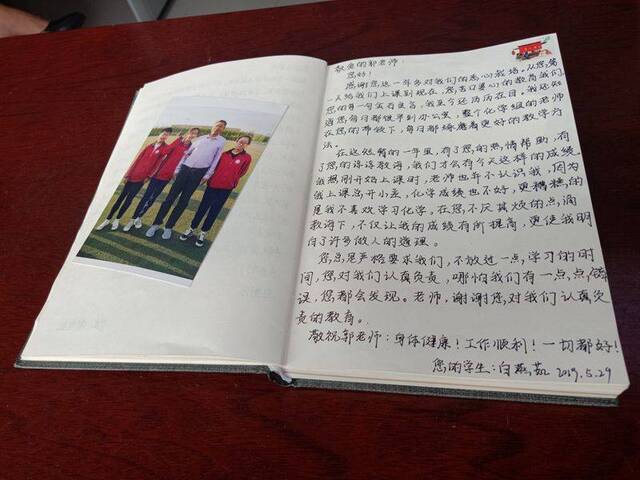 敬爱的郭老师:
您好!
感谢您这一年多对我们的悉心栽培。从您第
一天给我们上课到现在,您苦口婆心的教育我们,
您的每一句金石良言,我至今还历历在目。我还知
道您每日都很早到办公室,整个化学组的老师
在您的带领下,每日都琢磨着更好的教学方
法。
在这短暂的一年里,有了您的热情帮助,有
了您的谆谆教诲,我们才会有今天这样的成绩。
我想刚开始上课时,老师也并不认识我,因为
我上课总开小差,化学成绩也不好,更糟糕的
是我不喜欢学习化学。在您不厌其烦的点滴
教诲下,不仅让我的成绩有所提高,更使我明
白了许多做人的道理。
您总是严格要求我们,不放过一点学习的时
间,您对我们认真负责,哪怕我们有一点点错
误,您都会发现。老师,谢谢您对我们认真负
责的教育。
敬祝郭老师:身体健康!工作顺利!一切都好!
您的学生:白燕茹 2019.5.29